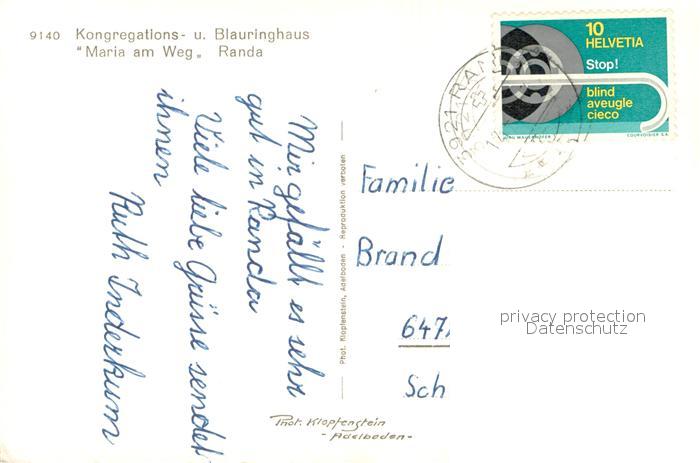 9140 Kongregations- u. Blauringhaus
"Maria am Weg„ Randa
Mir gefällt es sehr
gut in Randa
Viele liebe Grüsse sendet
ihnen
Ruth Inderkum
Phot. Klopfenstein, Adelboden - Reproduktion verboten
Phot. Klopfenstein
- Adelboden -
10
HELVETIA
Stop!
blind
aveugle
cieco
COURVOISIER S.A.
3921 RANDA
Familie
Brand
647
Sch
privacy protection
Datenschutz